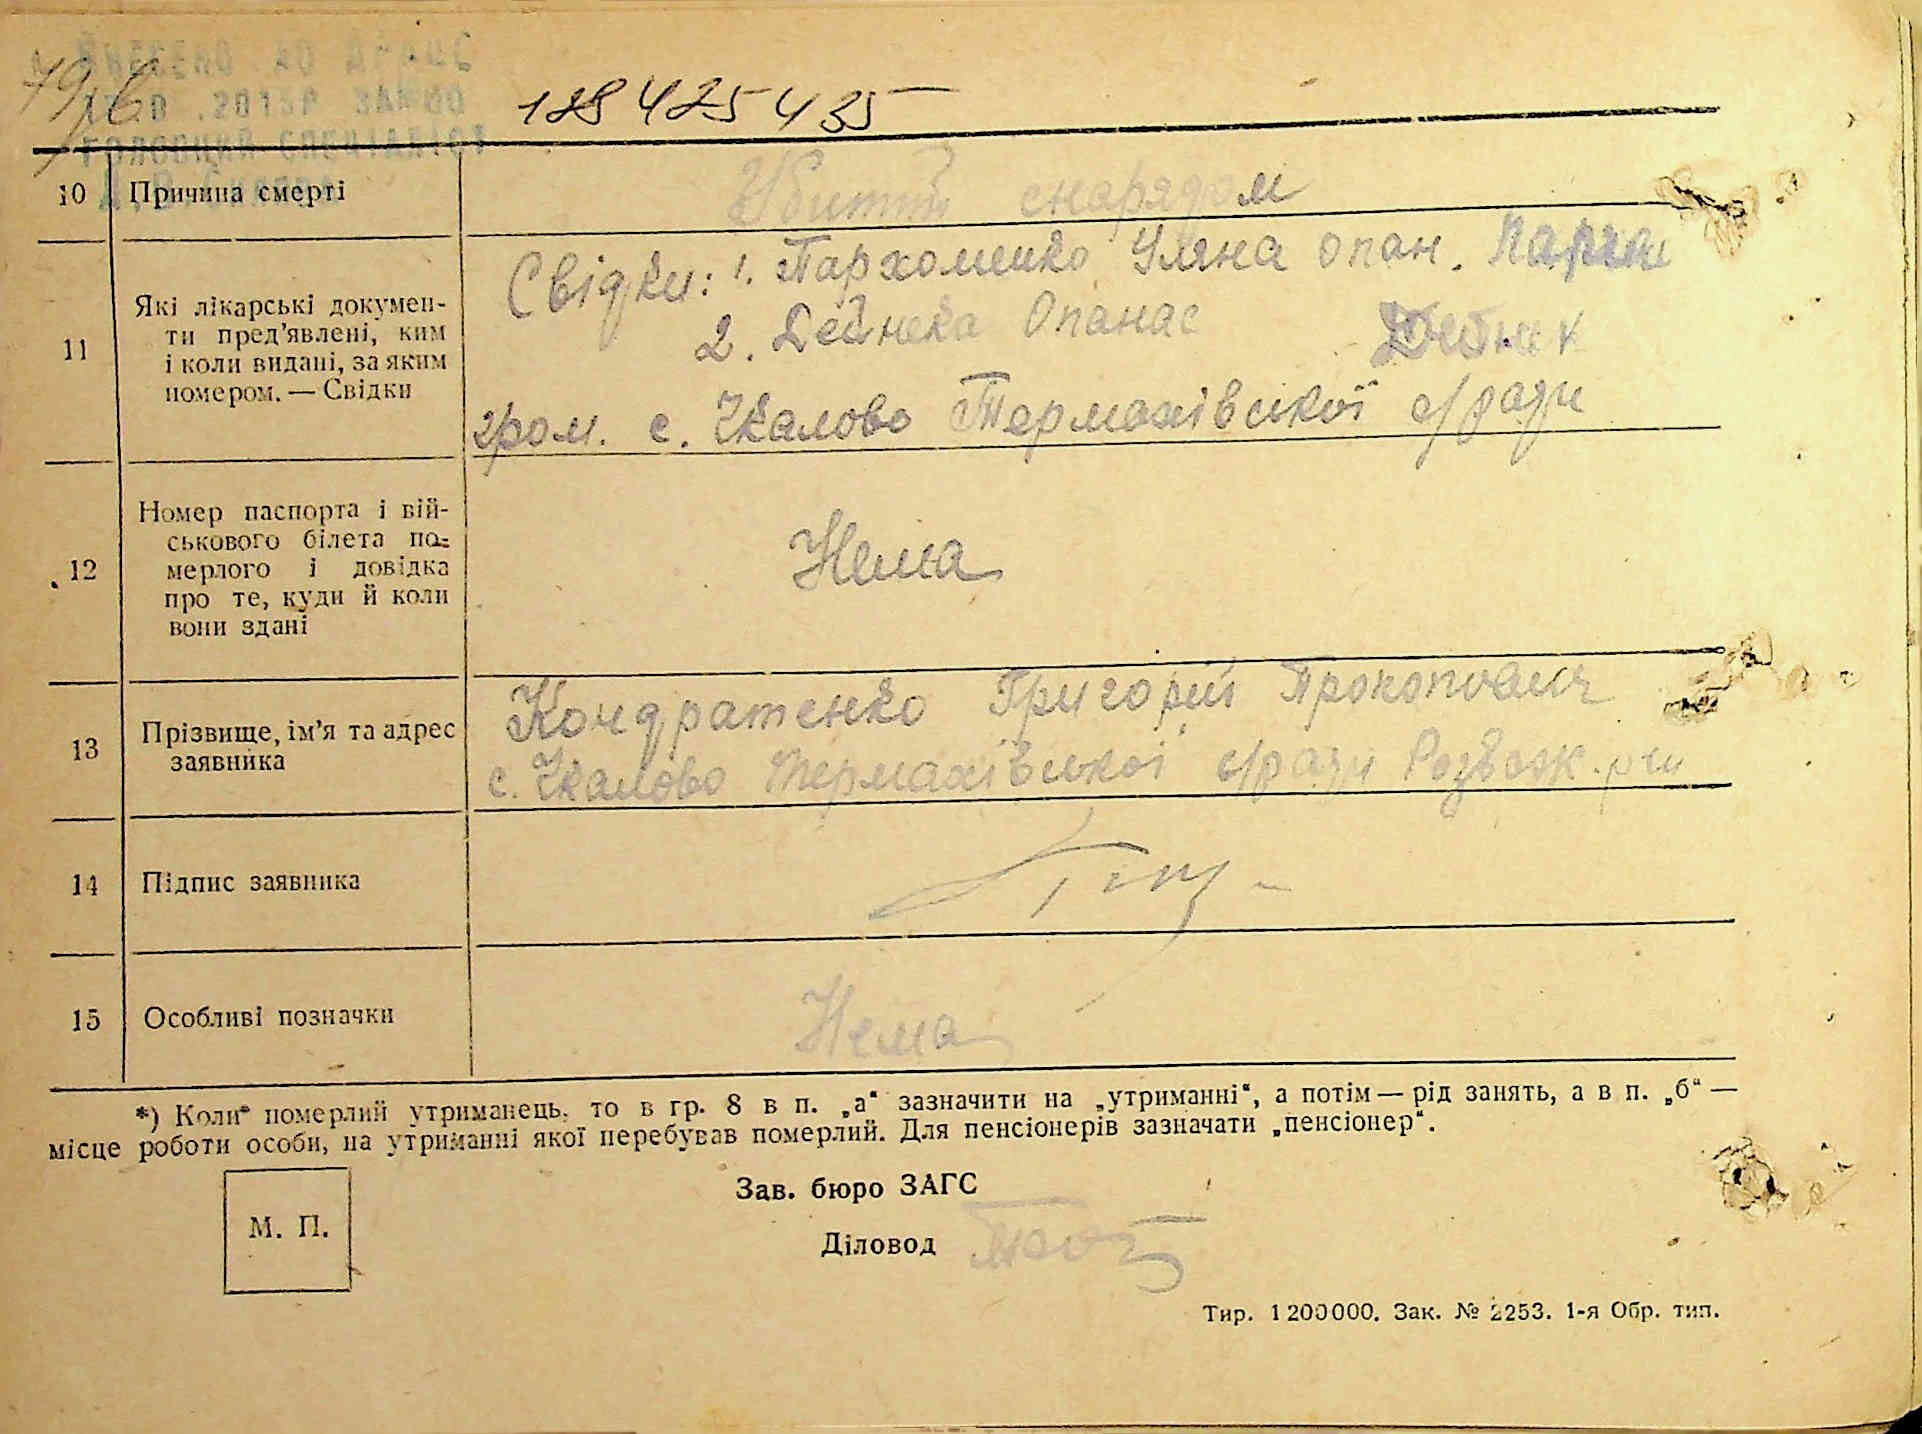 128425435
10 Причина смерті Убитий снарядом
11 Які лікарські докумен-
ти пред'явлені, ким
і коли видані, за яким
номером. — Свідки
Свідки: 1. Пархоменко Уляна Опан.
2. Дейнека Опанас
гром. с. Чкалово Термахівської с/ради
12 Номер паспорта і вій-
ськового білета по-
мерлого і довідка
про те, куди й коли
вони здані
Нема
13 Прізвище, ім'я та адрес
заявника
Кондратенко Григорій Прокопович
с. Чкалово Термахівської с/ради Розваж. р-ну
14 Підпис заявника
15 Особливі позначки Нема
*) Коли померлий утриманець, то в гр. 8 в п. „а“ зазначити на „утриманні“, а потім — рід занять, а в п. „б“ —
місце роботи особи, на утриманні якої перебував померлий. Для пенсіонерів зазначати „пенсіонер“.
Зав. бюро ЗАГС
М. П.
Діловод
Тир. 1200000. Зак. № 2253. 1-я Обр. тип.